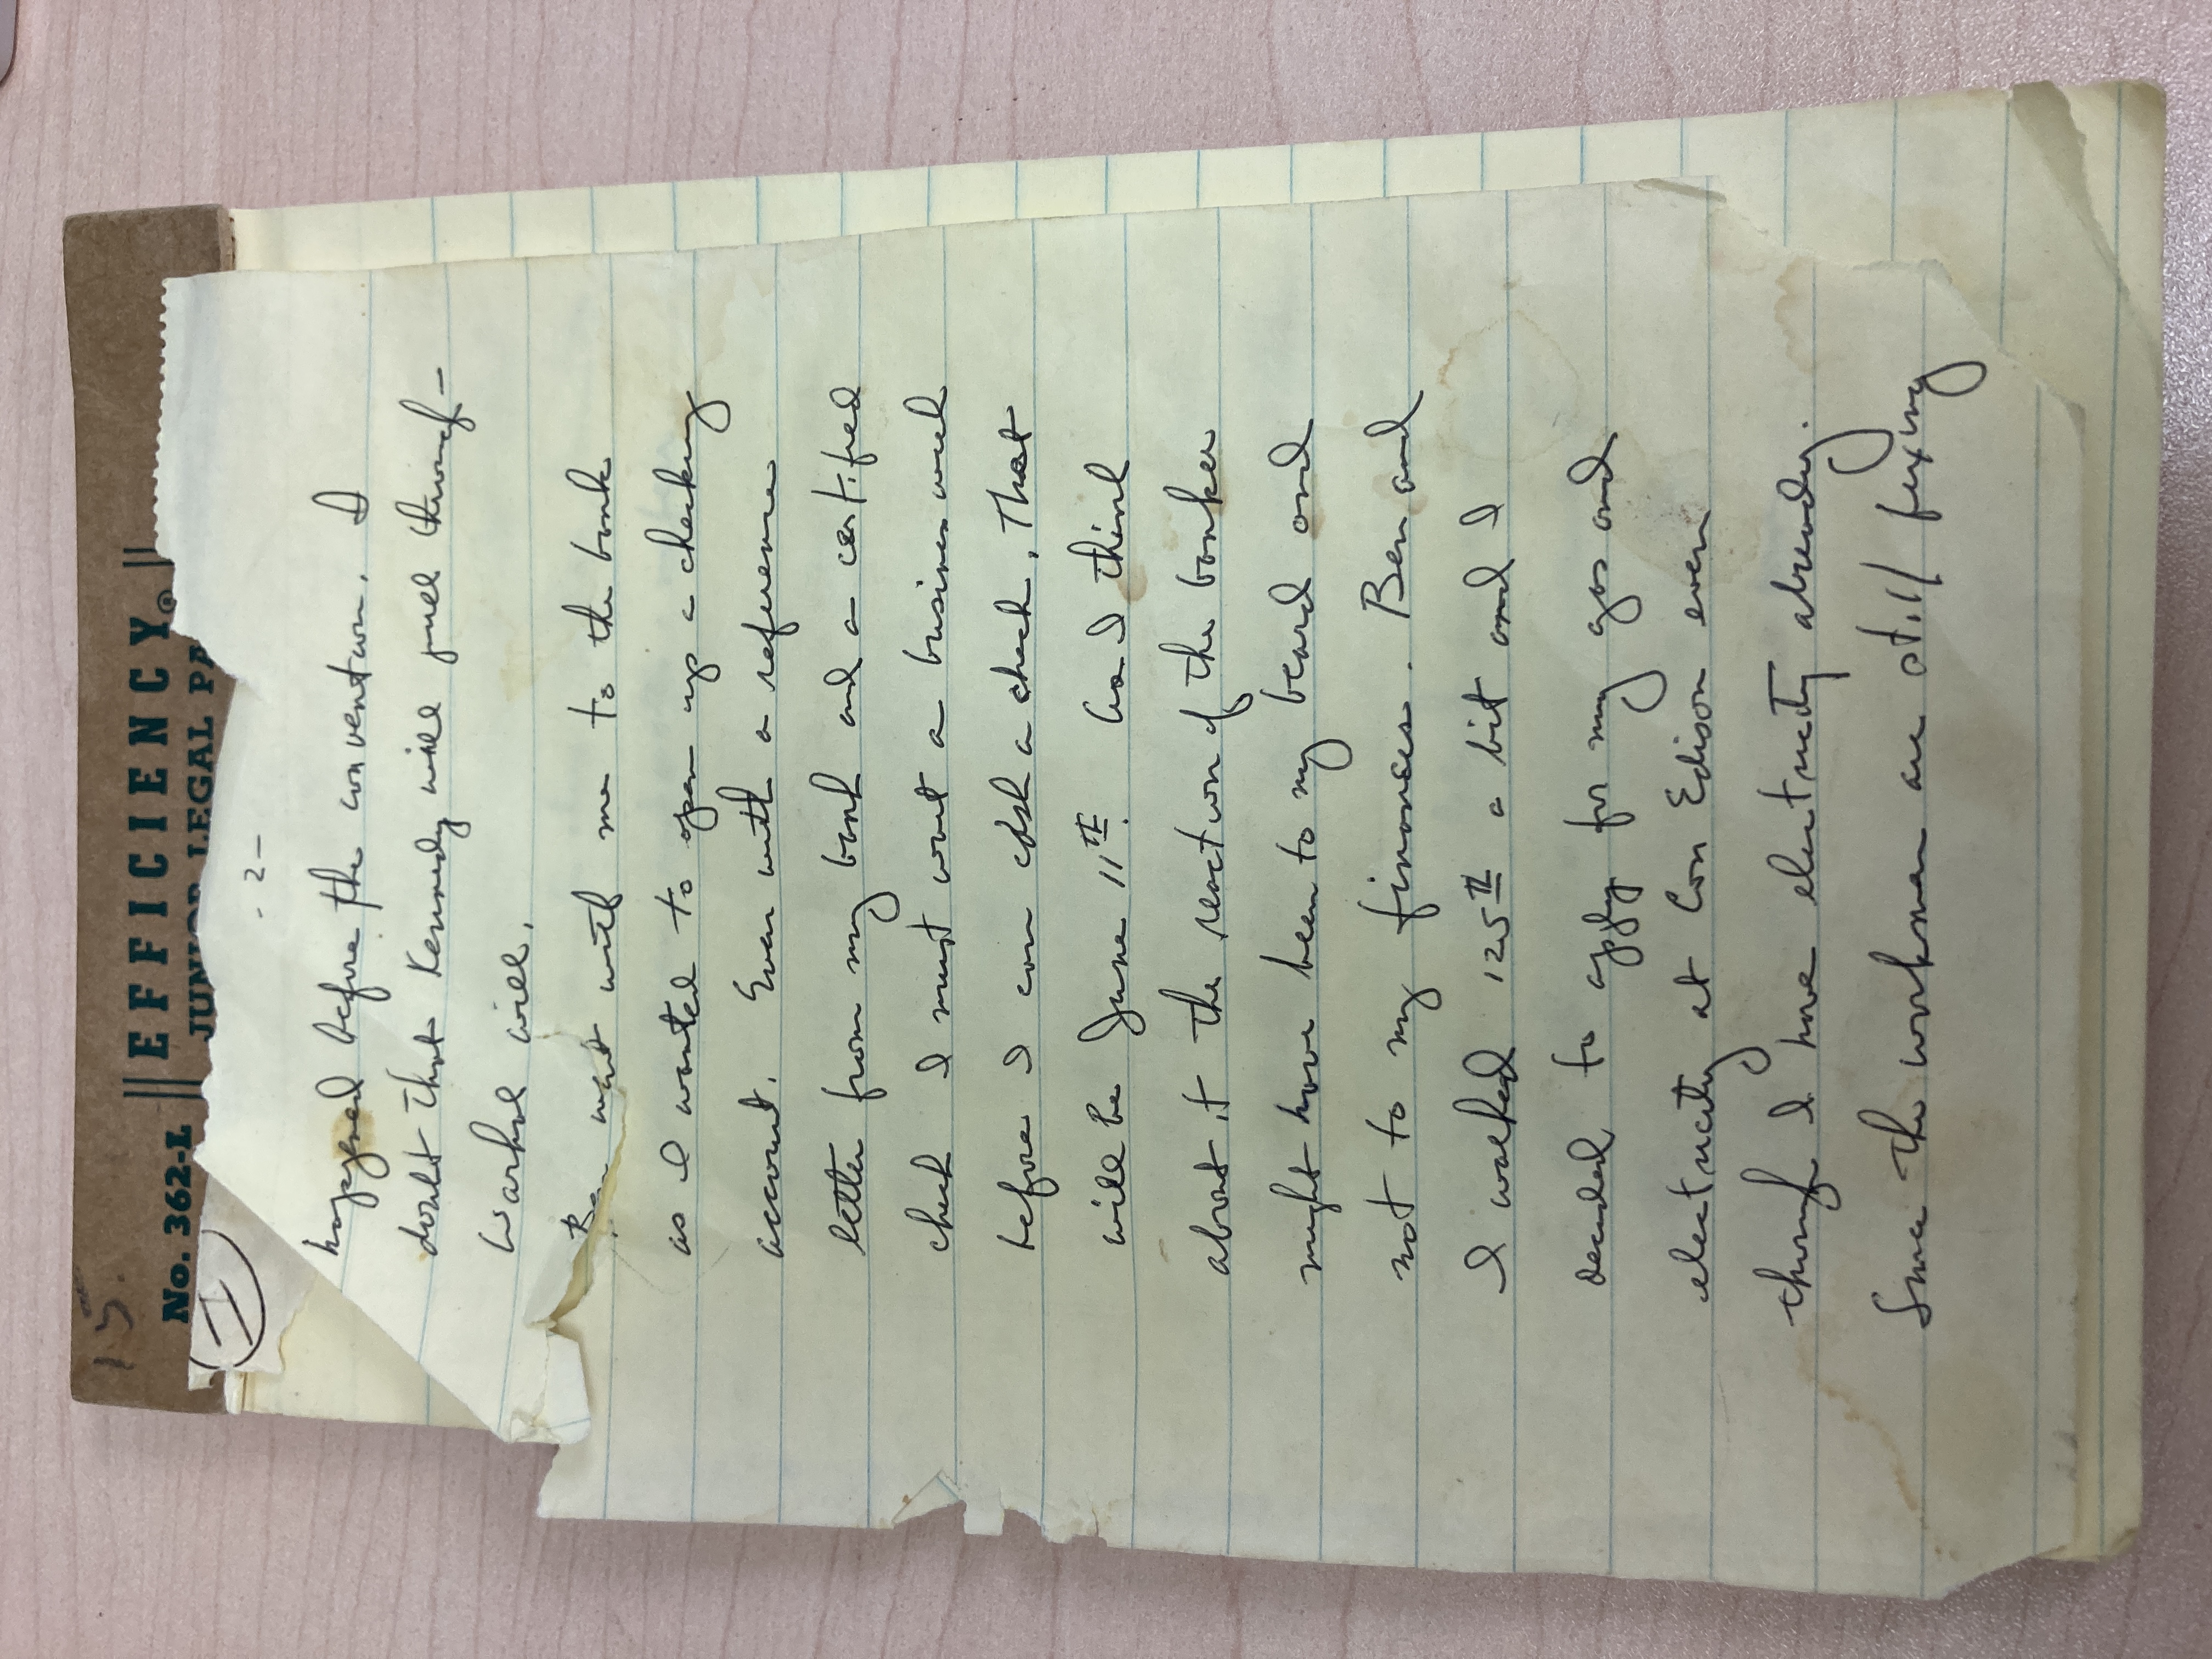 15.
No. 362-L EFFICIENCY®
JUNIOR LEGAL PA
- 2 -
happened before the convention. I
doubt that Kennedy will pull through -
Warhol will.
Ben went with me to the bank
as I wanted to open up a checking
account. Even with a reference
letter from my bank and a certified
check I must wait a business week
before I can cash a check. That
will be June 11th. And I think
about it the reaction of the banker
might have been to my beard and
not to my finances. Ben and
I walked 125th a bit and I
decided to apply for my gas and
electricity at Con Edison even
though I have electricity already.
Since the workmen are still fixing